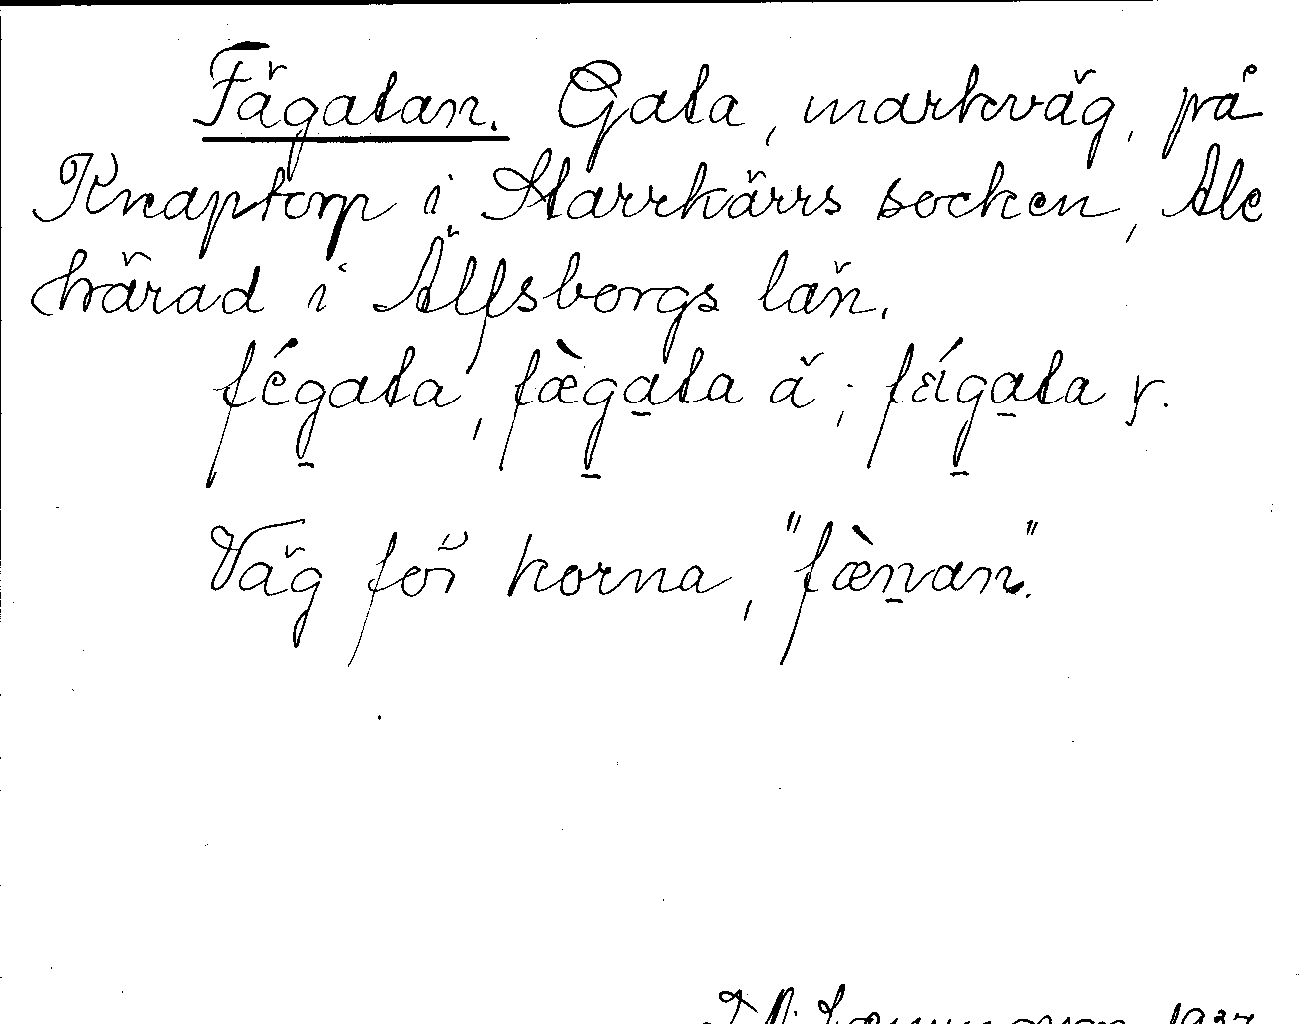 Fägatan. Gata, markväg, på
Knaptorp i Starrkärrs socken, Ale
härad i Älfsborgs län.
fégata, fæ̀gata ä; féigata y.
Väg för korna, "fæ̀nan".
1937